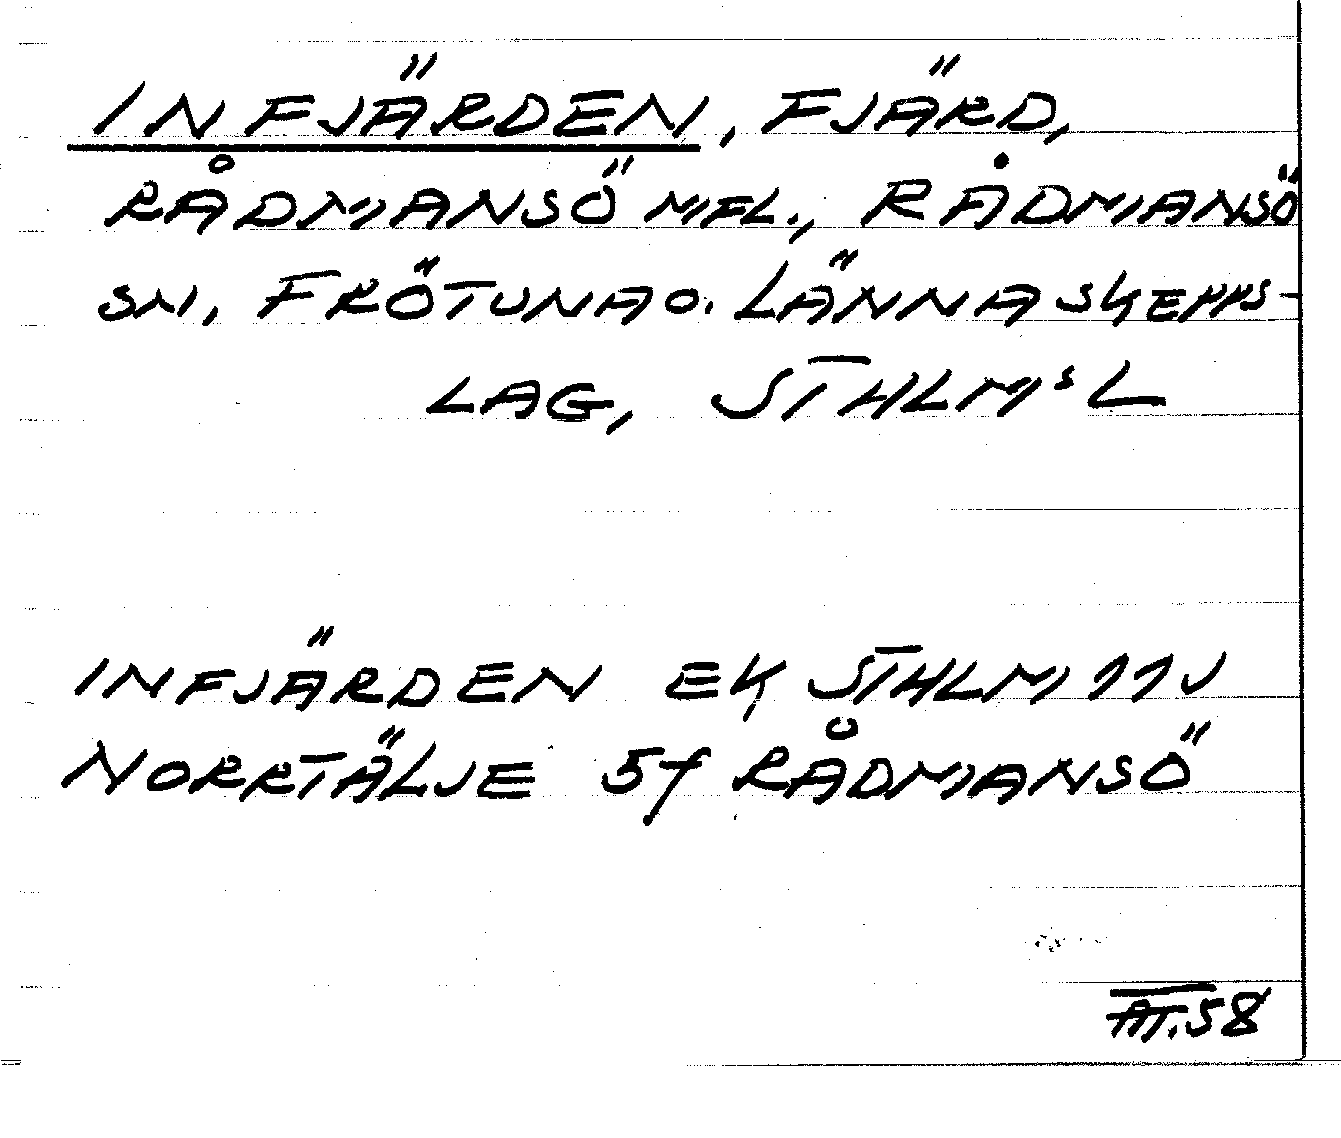 INFJÄRDEN, FJÄRD,
RÅDMANSÖ MFL., RÅDMANSÖ
SN, FRÖTUNA O. LÄNNA SKEPPS-
LAG, STHLMS L
INFJÄRDEN EK STHLM 11J
NORRTÄLJE 5f RÅDMANSÖ
58